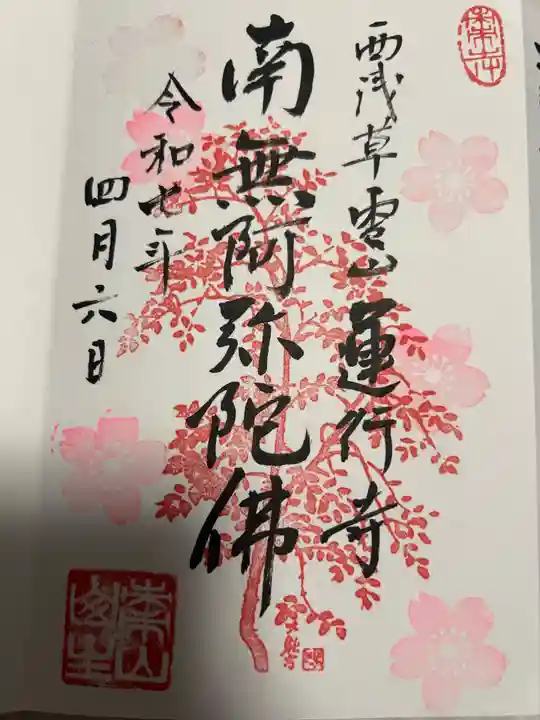 西浅草雲山蓮行寺
南無阿弥陀佛
令和七年
四月六日